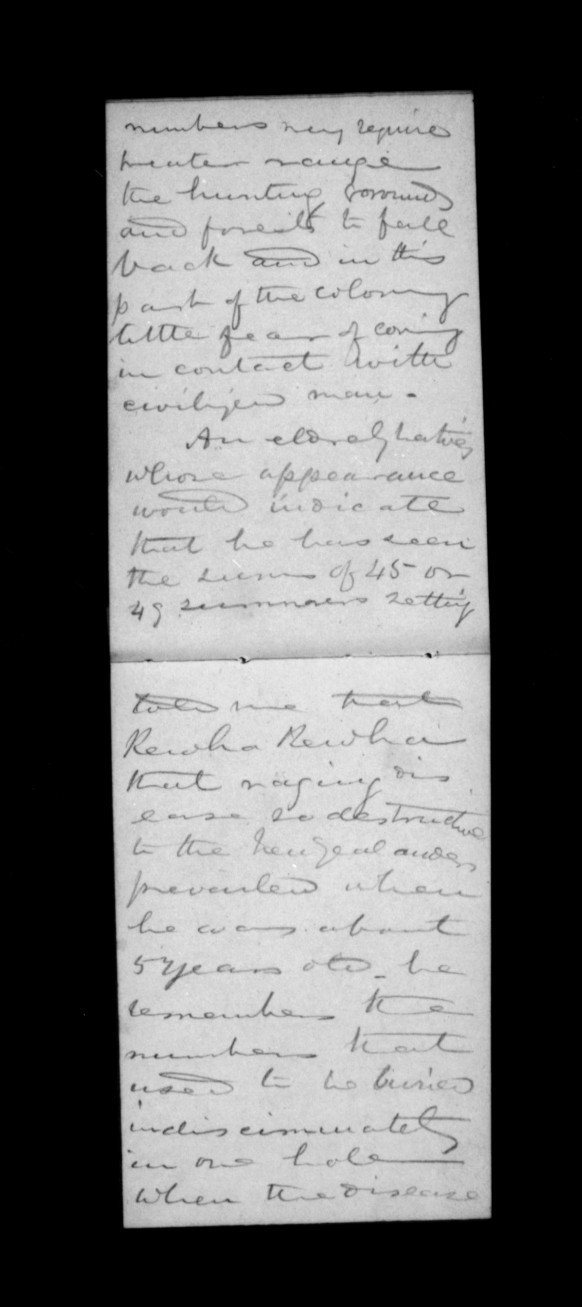 numbers may require
greater range
the hunting grounds
and forests to fall
back and in this
part of the colony
little fear of coming
in contact with
civilized man.
An elderly native
whose appearance
would indicate
that he has seen
the suns of 45 or
49 summers setting
told me that
Rewha Rewha
that raging dis
ease so destructive
to the New Zealanders
prevailed when
he was about
5 years old - he
remembers the
numbers that
used to be buried
indisciminately
in one hole
when the disease